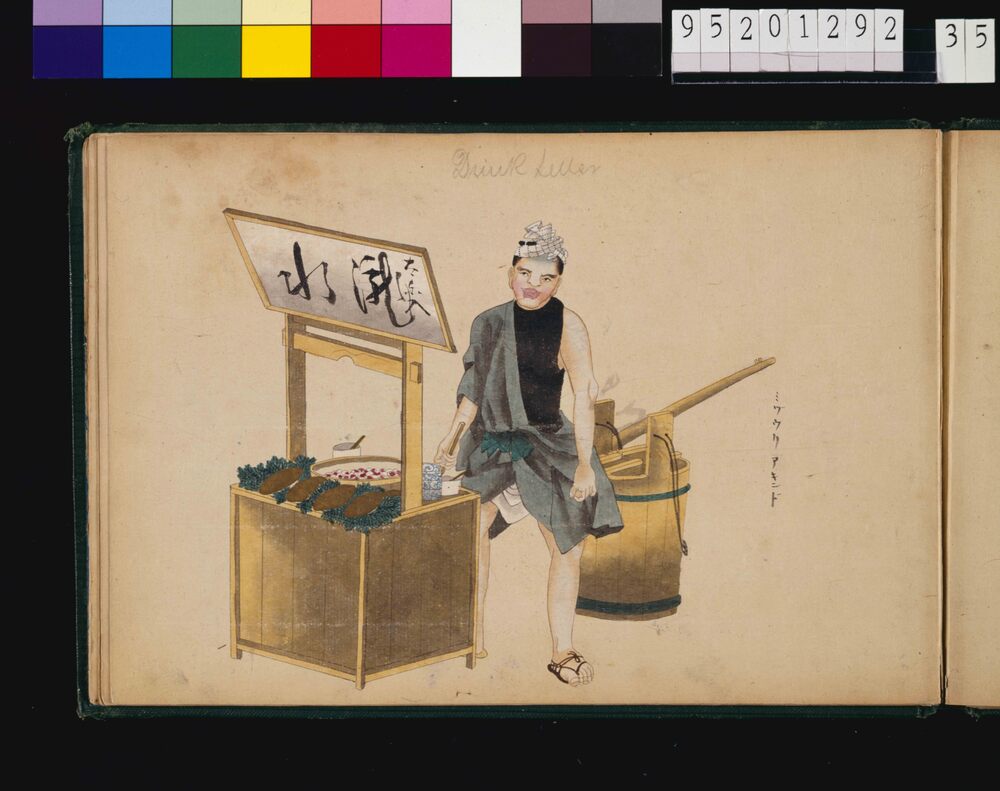 95201292 35
Drink Seller
瀧水
ミヅウリアキンド